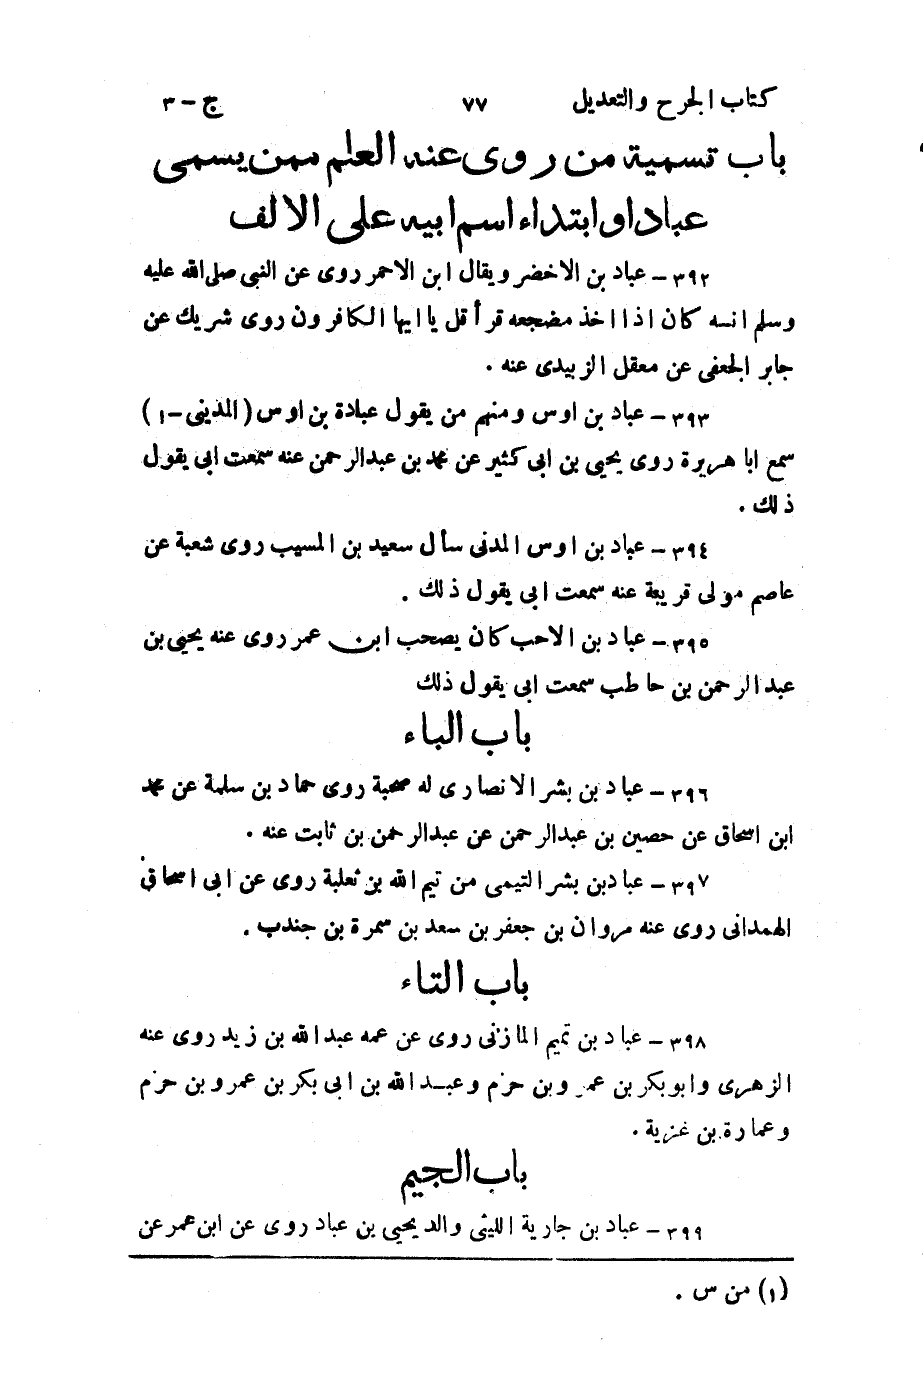 كتاب الجرح والتعديل ٧٧ ج - ٣
باب تسمية من روى عنه العلم ممن يسمى
عباد او ابتداء اسم ابيه على الالف
٣٩٢ - عباد بن الاخضر ويقال ابن الاحمر روى عن النبي صلى الله عليه
وسلم انه كان اذا اخذ مضجعه قرأ قل يا ايها الكافرون روى شريك عن
جابر الجعفى عن معقل الزبيدى عنه .
٣٩٣ - عباد بن اوس ومنهم من يقول عبادة بن اوس (المدينى - ١)
سمع ابا هريرة روى يحيى بن ابى كثير عن محمد بن عبد الرحمن عنه سمعت ابى يقول
ذلك .
٣٩٤ - عباد بن اوس المدنى سأل سعيد بن المسيب روى شعبة عن
عاصم مولى قريعة عنه سمعت ابى يقول ذلك .
٣٩٥ - عباد بن الاحب كان يصحب ابن عمر روى عنه يحيى بن
عبد الرحمن بن حاطب سمعت ابى يقول ذلك
باب الباء
٣٩٦ - عباد بن بشر الانصارى له صحبة روى حماد بن سلمة عن محمد
ابن اسحاق عن حصين بن عبد الرحمن عن عبد الرحمن بن ثابت عنه .
٣٩٧ - عباد بن بشر التيمى من تيم الله بن ثعلبة روى عن ابى اسحاق
الهمدانى روى عنه مروان بن جعفر بن سعد بن سمرة بن جندب .
باب التاء
٣٩٨ - عباد بن تميم المازنى روى عن عمه عبد الله بن زيد روى عنه
الزهرى وابو بكر بن عمرو بن حزم وعبد الله بن ابى بكر بن عمرو بن حزم
وعمارة بن غزية .
باب الجيم
٣٩٩ - عباد بن جارية الليثى والد يحيى بن عباد روى عن ابن عمر عن
(١) من س .